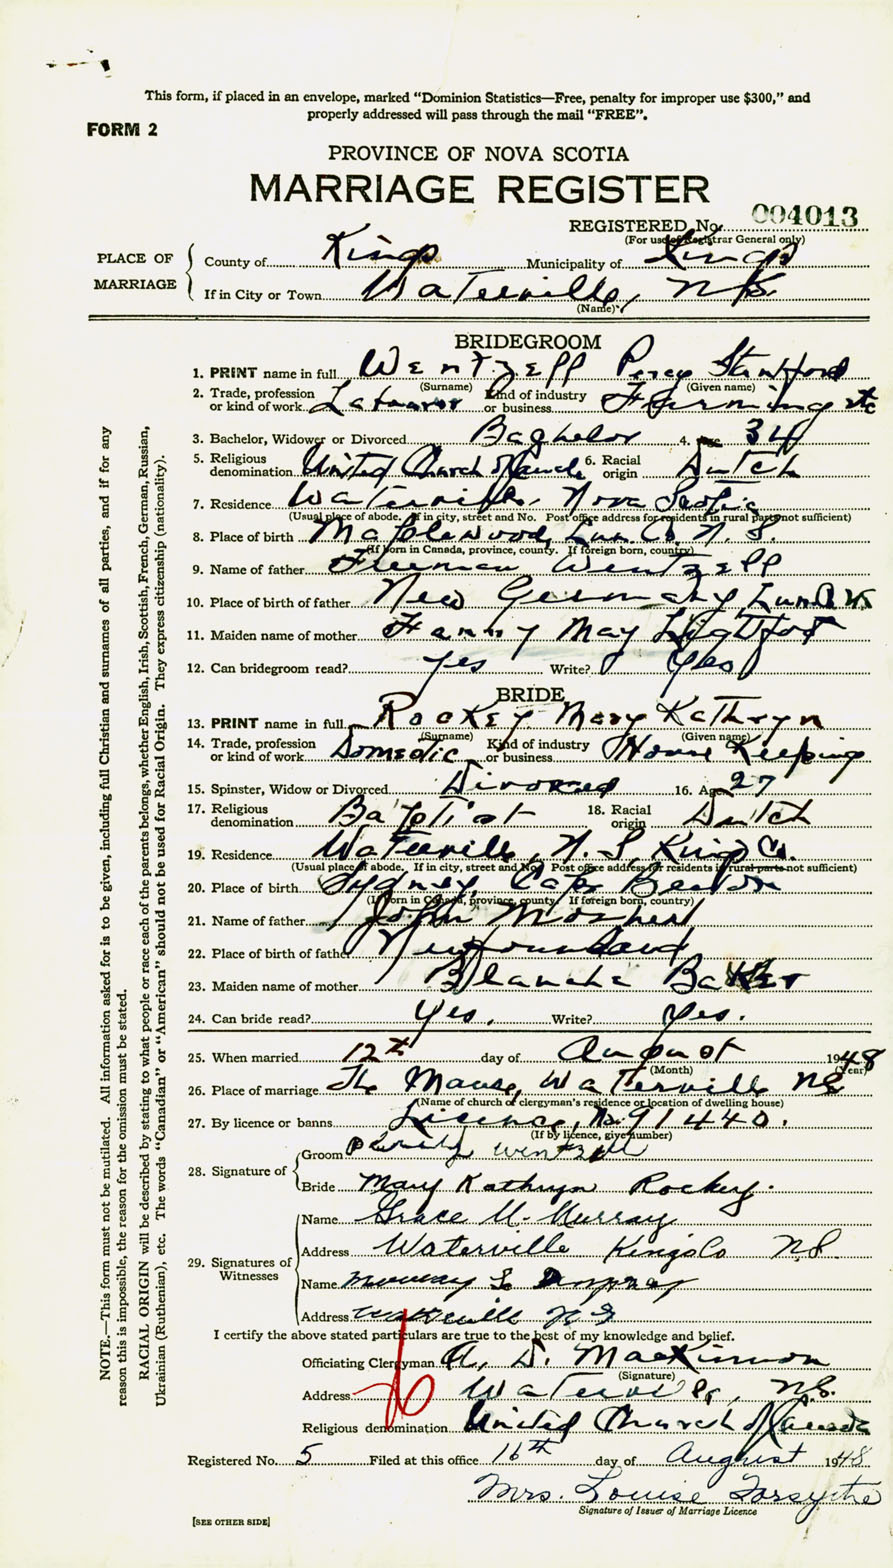 This form, if placed in an envelope, marked "Dominion Statistics—Free, penalty for improper use $300," and
properly addressed will pass through the mail "FREE".
FORM 2
PROVINCE OF NOVA SCOTIA
MARRIAGE REGISTER
REGISTERED No. 004013
(For use of Registrar General only)
PLACE OF MARRIAGE
County of Kings Municipality of Kings
If in City or Town Waterville, N.S.
(Name)
BRIDEGROOM
1. PRINT name in full Wentzell Percy Stanford
(Surname) (Given name)
2. Trade, profession or kind of work Labourer Kind of industry or business Farming etc
3. Bachelor, Widower or Divorced Baghelor 4. Age 34
5. Religious denomination United Church of Canada 6. Racial origin Dutch
7. Residence Waterville, Nova Scotia
(Usual place of abode. If in city, street and No. Post office address for residents in rural parts not sufficient)
8. Place of birth Maplewood, Lun. Co. N.S.
(If born in Canada, province, county. If foreign born, country)
9. Name of father Freeman Wentzell
10. Place of birth of father New Germany Lun.
11. Maiden name of mother Fanny May Lightfoot
12. Can bridegroom read? Yes Write? Yes
BRIDE
13. PRINT name in full Rockey Mary Kathryn
(Surname) (Given name)
14. Trade, profession or kind of work Domestic Kind of industry or business House Keeping
15. Spinster, Widow or Divorced Divorced 16. Age 27
17. Religious denomination Baptist 18. Racial origin Dutch
19. Residence Waterville, N.S, Kings Co.
(Usual place of abode. If in city, street and No. Post office address for residents in rural parts not sufficient)
20. Place of birth Sydney, Cape Breton
(If born in Canada, province, county. If foreign born, country)
21. Name of father John Mosher
22. Place of birth of father Newfoundland
23. Maiden name of mother Blanche Baxter
24. Can bride read? Yes. Write? Yes.
25. When married 12th day of August 1948
(Month) (Year)
26. Place of marriage The Manse, Waterville NS
(Name of church or clergyman's residence or location of dwelling house)
27. By licence or banns Licence, No. 91440.
(If by licence, give number)
28. Signature of
Groom Wentzell
Bride Mary Kathryn Rockey.
29. Signatures of Witnesses
Name Grace M. Murray
Address Waterville Kings Co N.S.
Name Murray
Address Waterville N S
I certify the above stated particulars are true to the best of my knowledge and belief.
Officiating Clergyman A. D. MacKinnon
(Signature)
Address Waterville, N.S.
Religious denomination United Church of Canada
Registered No. 5 Filed at this office 16th day of August 1948
Mrs. Louise Forsythe
Signature of Issuer of Marriage Licence
[SEE OTHER SIDE]
NOTE.—This form must not be mutilated. All information asked for is to be given, including full Christian and surnames of all parties, and if for any
reason this is impossible, the reason for the omission must be stated.
RACIAL ORIGIN will be described by stating to what people or race each of the parents belongs, whether English, Irish, Scottish, French, German, Russian,
Ukrainian (Ruthenian), etc. The words "Canadian" or "American" should not be used for Racial Origin. They express citizenship (nationality).